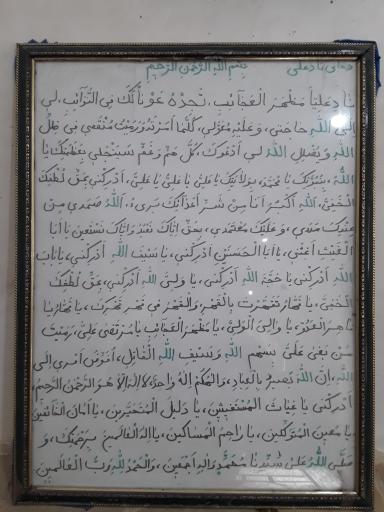 دعای نادعلی بسم الله الرحمن الرحیم
ناد علیا مظهر العجائب، تجده عونا لک فی النوائب، لی
الی الله حاجتی، وعلیه معولی، کلما امرته ورمیت منقضی فی ظل
الله ویضلل الله لی ادعوک، کل هم وغم سینجلی بعظمتک یا
الله، بنبوتک یا محمد، بولایتک یا علی یا علی یا علی، ادرکنی بحق لطفک
الخفی، الله اکبر انا من شر اعدائک بریء، الله صمدی من
عندک مددی، وعلیک معتمدی، بحق ایاک نعبد وایاک نستعین یا ابا
الغیث اغثنی، یا ابا الحسنین ادرکنی، یا سیف الله ادرکنی، یا باب
الله ادرکنی یا حجة الله ادرکنی، یا ولی الله ادرکنی، بحق لطفک
الخفی، یا قهار تقهرت بالقهر، والقهر فی قهر قهرک، یا قهار یا
قاهر العدو، یا والی الولی، یا مظهر العجائب یا مرتضی علی، رمیت
من بغی علی بسهم الله وسیف الله القاتل، افوض امری الی
الله، ان الله بصیر بالعباد، والهکم اله واحد، لا اله الا هو الرحمن الرحیم،
ادرکنی یا غیاث المستغیثین، یا دلیل المتحیرین، یا امان الخائفین
یا معین المتوکلین، یا راحم المساکین، یا اله العالمین برحمتک، و
صلی الله علی سیدنا محمد واله اجمعین، والحمد لله رب العالمین